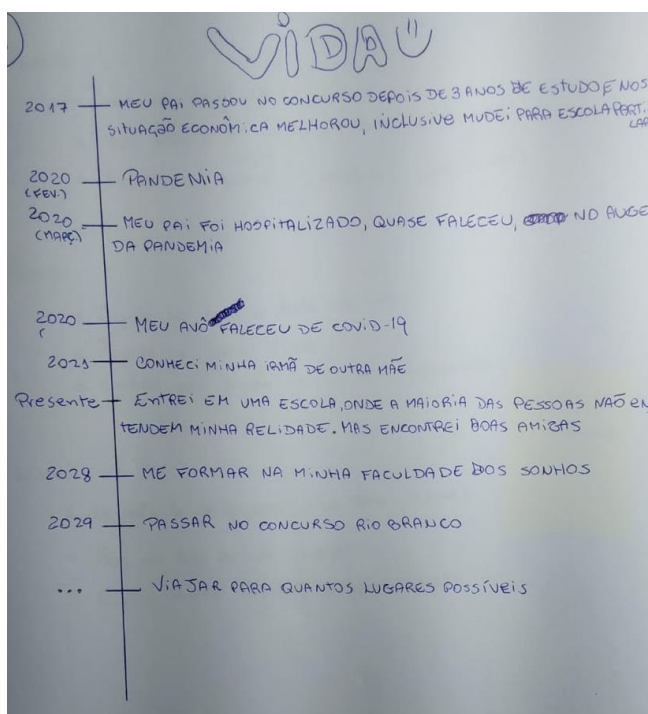 VIDA
2017 MEU PAI PASSOU NO CONCURSO DEPOIS DE 3 ANOS DE ESTUDO E NOS
SITUAÇÃO ECONÔMICA MELHOROU, INCLUSIVE MUDEI PARA ESCOLA PARTI
LAR
2020 PANDEMIA
(FEV.)
2020 MEU PAI FOI HOSPITALIZADO, QUASE FALECEU, NO AUGE
(MARÇ) DA PANDEMIA
2020 MEU AVÔ FALECEU DE COVID-19
(
2021 CONHECI MINHA IRMÃ DE OUTRA MÃE
Presente ENTREI EM UMA ESCOLA, ONDE A MAIORIA DAS PESSOAS NÃO EN
TENDEM MINHA RELIDADE. MAS ENCONTREI BOAS AMIGAS
2028 ME FORMAR NA MINHA FACULDADE DOS SONHOS
2029 PASSAR NO CONCURSO RIO BRANCO
... VIAJAR PARA QUANTOS LUGARES POSSÍVEIS